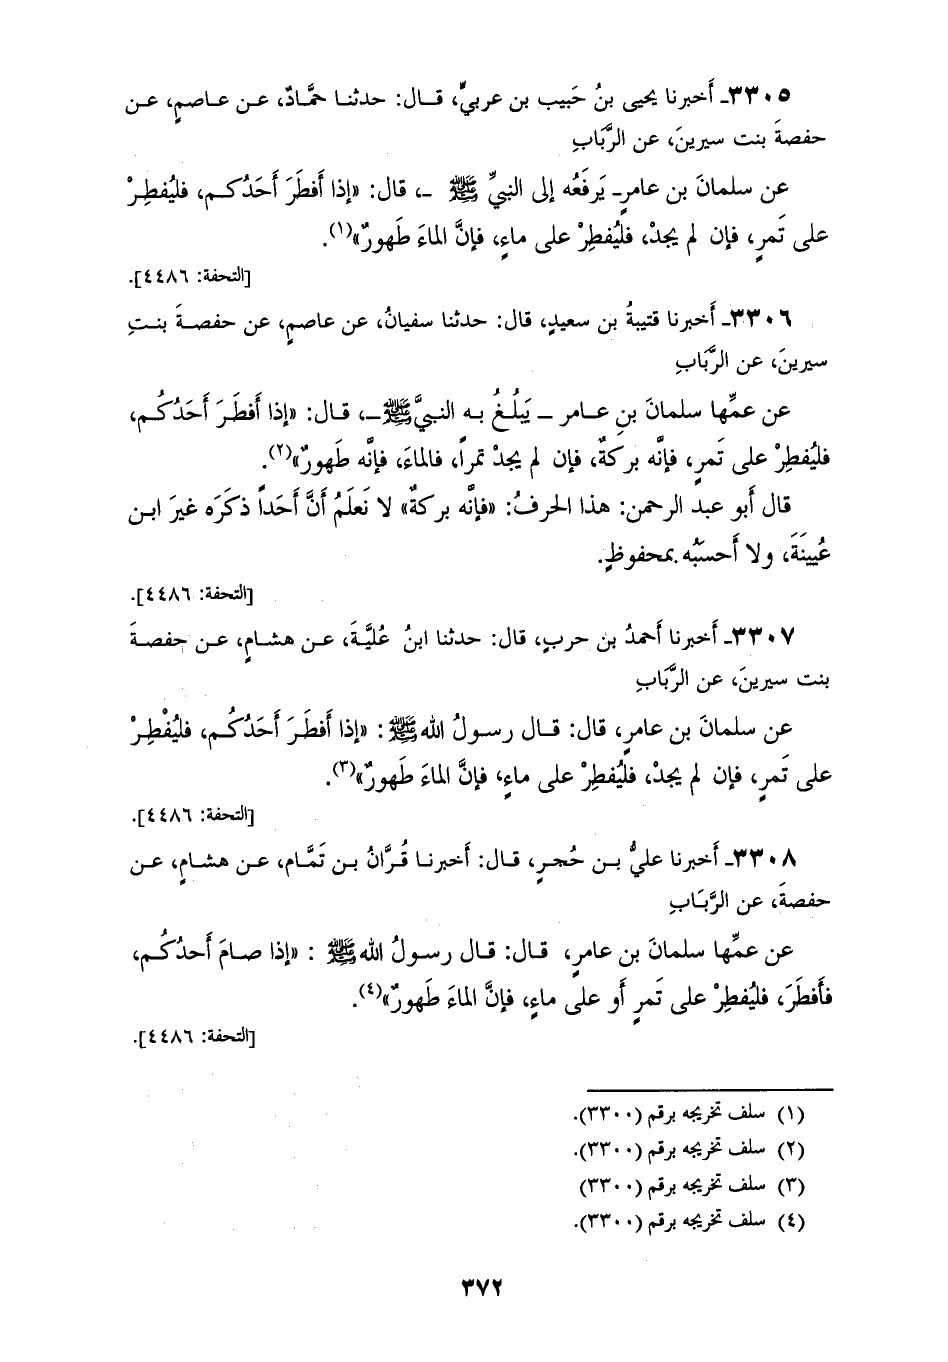 ٣٣٠٥ـ أَخبرنا يحيى بنُ حَبيب بن عربيٍّ، قـال: حدثنـا حمَّادٌ، عـن عـاصمٍ، عـن
حفصةَ بنت سيرينَ، عن الرَّبَابِ
عن سلمانَ بن عامرٍـ يَرفَعُه إلى النبيِّ ﷺ ـ، قال: «إذا أَفطَرَ أَحَدُكـم، فليُفطِرْ
على تَمرٍ، فإن لم يجدْ، فليُفطِرْ على ماءٍ، فإنَّ الماءَ طَهورٌ»(١).
[التحفة: ٤٤٨٦].
٣٣٠٦ـ أَخبرنا قتيبةُ بن سعيدٍ، قال: حدثنا سفيانُ، عن عاصمٍ، عن حفصـةَ بنـتِ
سيرينَ، عن الرَّبَابِ
عن عمِّها سلمانَ بنِ عـامر ـ يَبلُغُ بـه النبيَّ ﷺـ، قـال: «إذا أَفطَـرَ أَحَدُكُـم،
فليُفطِرْ على تَمرٍ، فإنَّه بركةٌ، فإن لم يجدْ تمراً، فالماءَ، فإنَّه طَهورٌ»(٢).
قال أَبو عبد الرحمن: هذا الحرفُ: «فإنَّه بركةٌ» لا نَعلَمُ أَنَّ أَحَداً ذكَرَه غيرَ ابـن
عُيينَةَ، ولا أَحسَبُه بمحفوظٍ.
[التحفة: ٤٤٨٦].
٣٣٠٧ـ أَخبرنا أَحمدُ بن حربٍ، قال: حدثنا ابنُ عُليَّـةَ، عـن هشـامٍ، عـن حفصـةَ
بنت سيرينَ، عن الرَّبَابِ
عن سلمانَ بن عامرٍ، قال: قـال رسـولُ الله ﷺ: «إذا أَفطَـرَ أَحَدُكُـم، فليُفْطِـرْ
على تَمرٍ، فإن لم يجدْ، فليُفطِرْ على ماءٍ، فإنَّ الماءَ طَهورٌ»(٣).
[التحفة: ٤٤٨٦].
٣٣٠٨ـ أَخبرنا عليُّ بـن حُجـرٍ، قـال: أَخبرنـا قُـرَّانُ بـن تَمَّـام، عـن هشـامٍ، عـن
حفصةَ، عن الرَّبَـابِ
عن عمِّها سلمانَ بن عامرٍ، قـال: قال رسـولُ الله ﷺ : «إذا صـامَ أَحدُكُـم،
فأَفطَرَ، فليُفطِرْ على تَمرٍ أَو على ماءٍ، فإنَّ الماءَ طَهورٌ»(٤).
[التحفة: ٤٤٨٦].
(١) سلف تخريجه برقم (٣٣٠٠).
(٢) سلف تخريجه برقم (٣٣٠٠).
(٣) سلف تخريجه برقم (٣٣٠٠)
(٤) سلف تخريجه برقم (٣٣٠٠).
٣٧٢